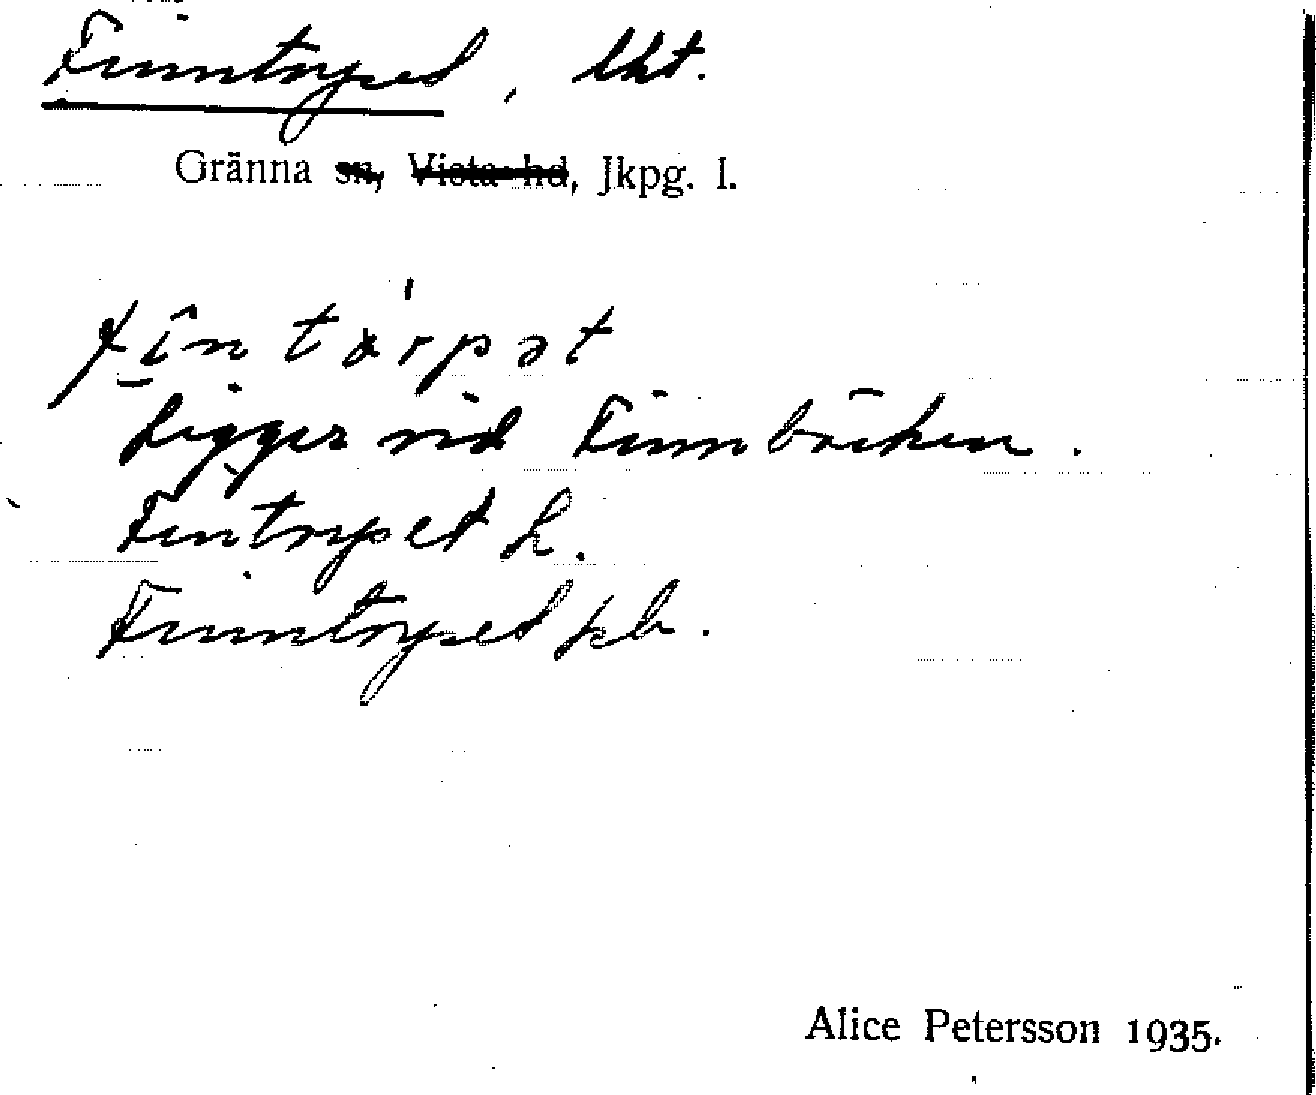 Finntorpet, lht.
Gränna sn, Vista hd, Jkpg. l.
fintərpət
Ligger vid Finnbäcken.
Fintorpet L.
Finntorpet jb.
Alice Petersson 1935.